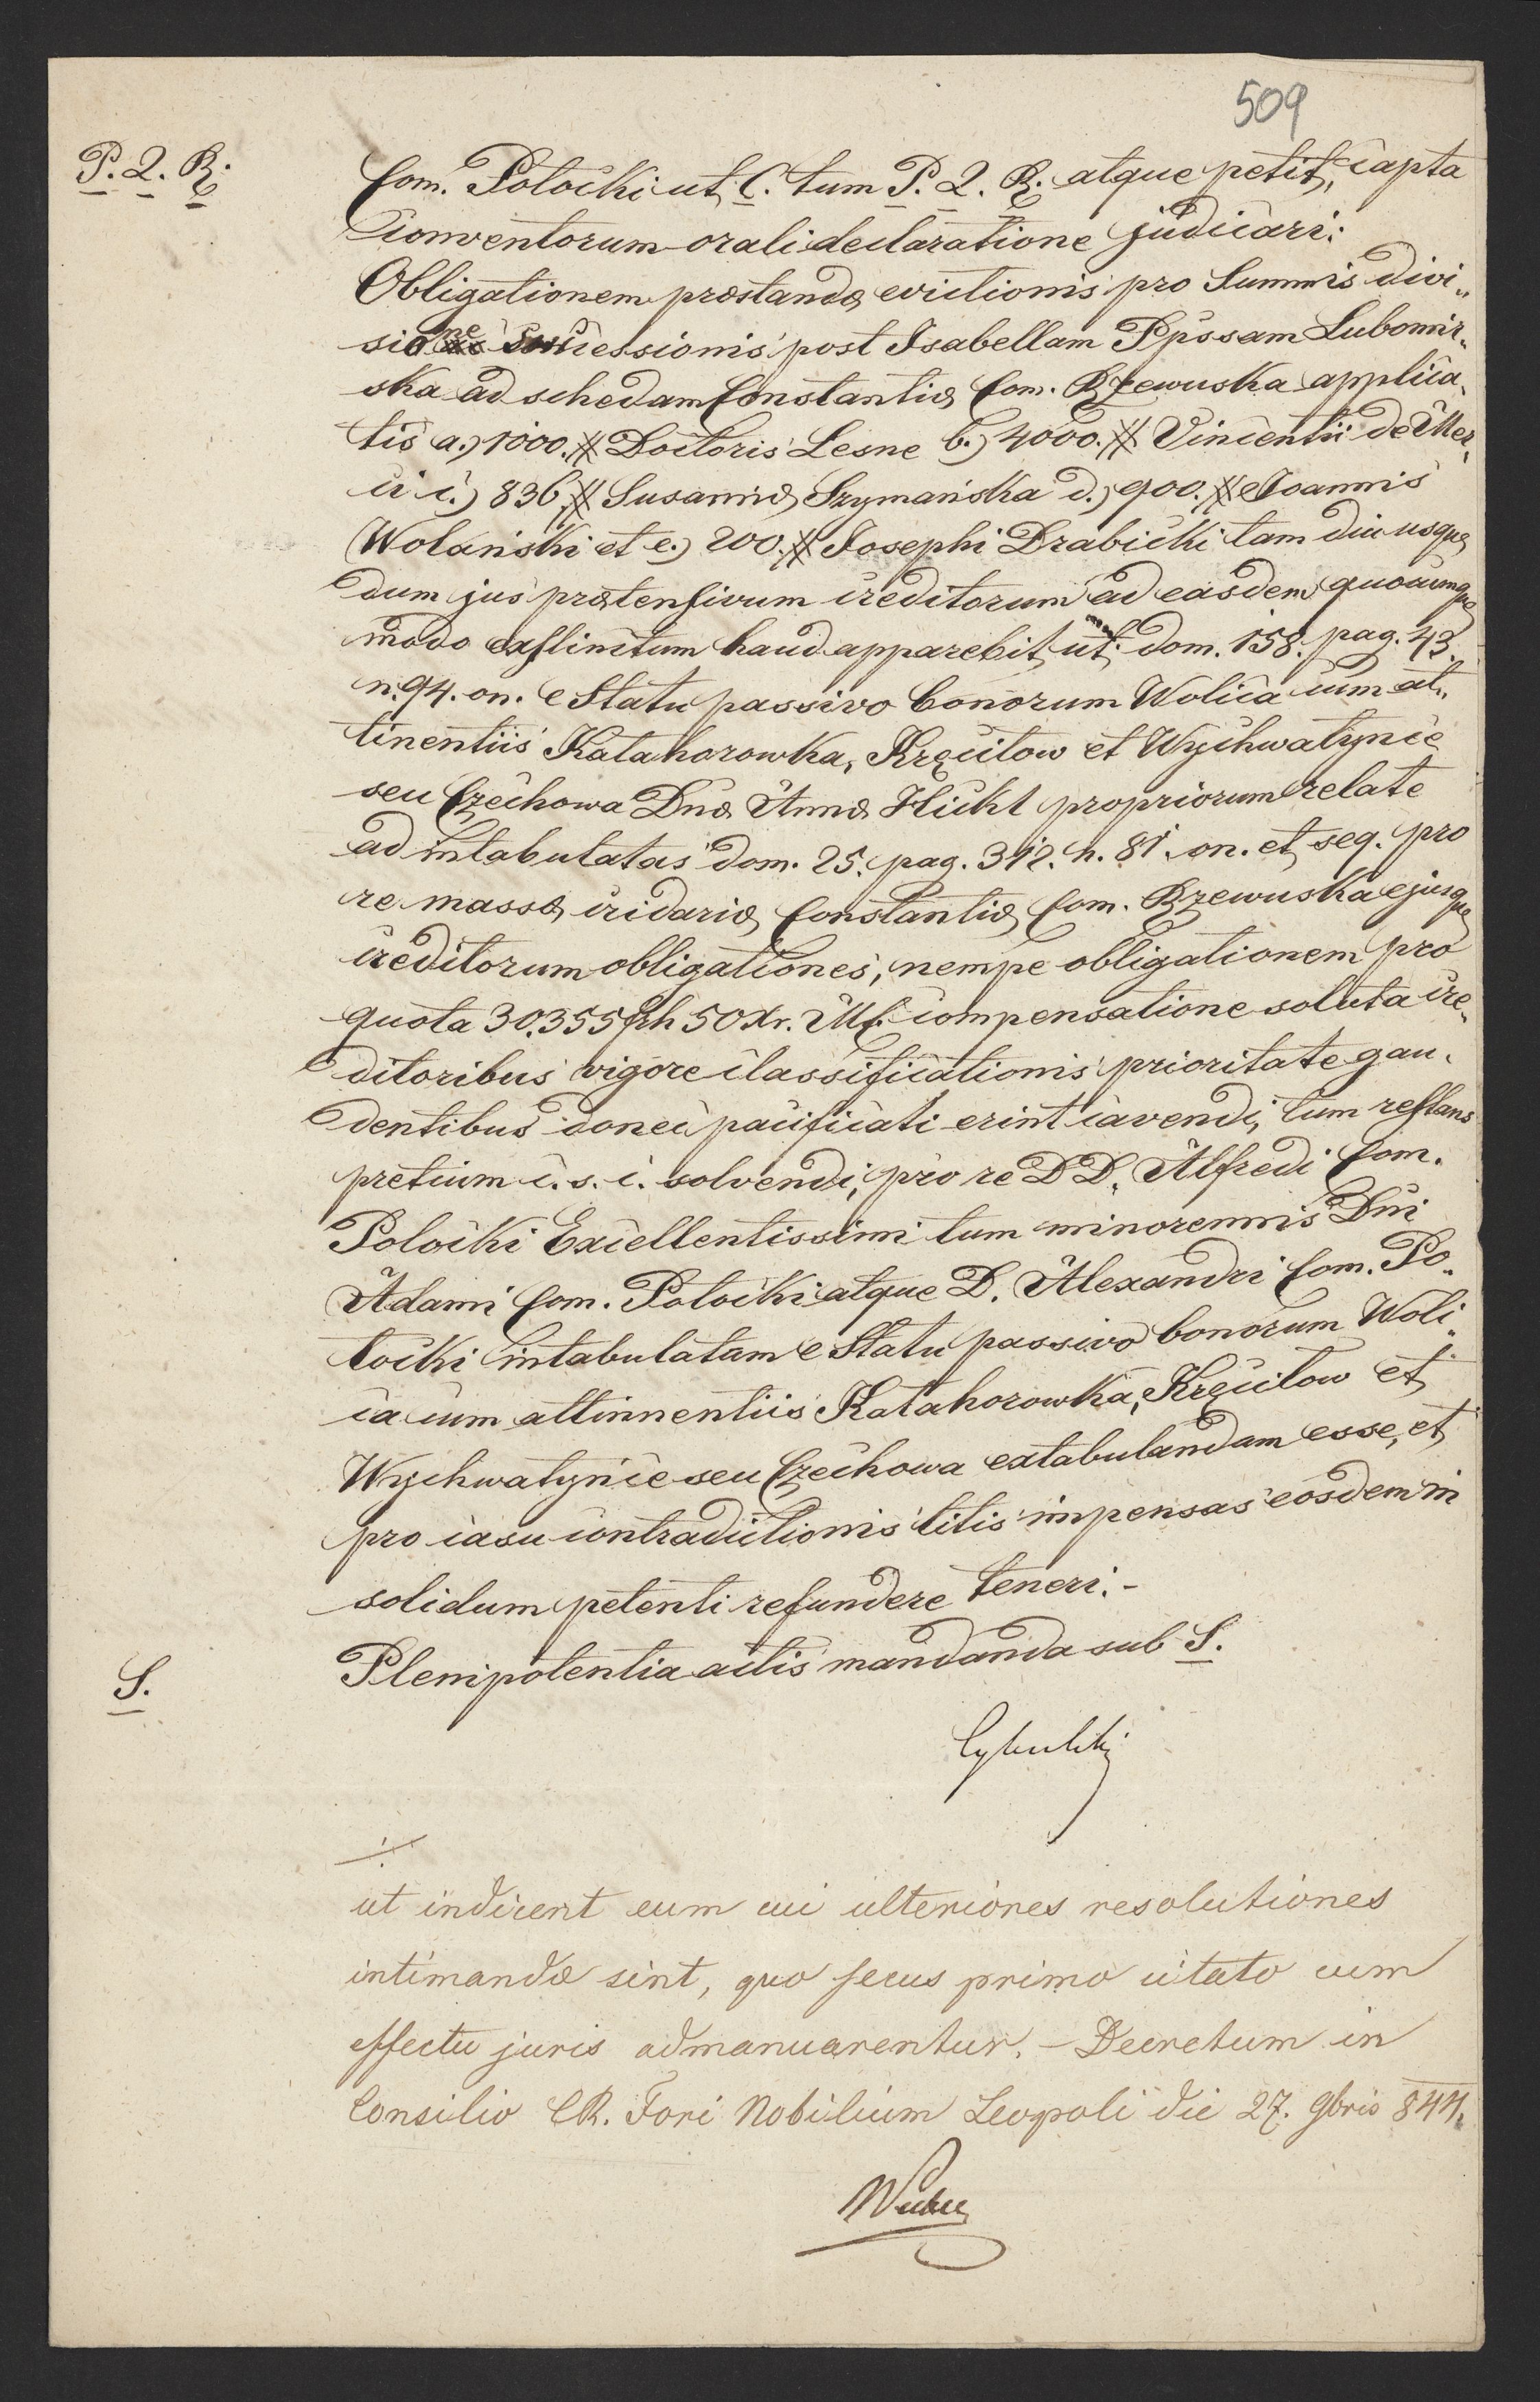 509
P. Q. R.
Com. Potocki ut C. tum P. Q. R. atque petit, capta
conventorum orali declaratione judicari:
Obligationem præstandæ evictionis pro Summis divi„
sione successionis post Isabellam Ppssam Lubomir„
ska ad schedam Constantiæ Com. Rzewuska applica„
tis a.) 1000. # Doctoris Lesne b.) 4000. # Vincentii de Mer„
ci c.) 836 # Susannæ Szymańska d.) 900. # Joannis
Wolański et e.) 200. # Josephi Drabicki tam diu usque
dum jus prætensivum creditorum ad easdem quocunque
modo exstinctum haud apparebit, ut dom. 158. pag. 43.
n. 94. on. e Statu passivo bonorum Wolica cum at„
tinentiis Katahorowka, Kręcitow et Wychwatynce
seu Czechowa Dnæ Annæ Hickl propriorum relate
ad intabulatas dom. 25. pag. 312. n. 81. on. et seq. pro
re massæ cridariæ Constantiæ Com. Rzewuska ejusque
creditorum obligationes, nempe obligationem pro
quota 30,355 frh 50 Xr. MC. compensatione soluta cre„
ditoribus vigore classificationis prioritate gau„
dentibus donec pacificati erint cavendi, tum restans
pretium c. s. c. solvendi, pro re DD. Alfredi Com.
Potocki Excellentissimi tum minorennis Dni
Adami Com. Potocki atque D. Alexandri Com. Po„
tocki intabulatam e Statu passivo bonorum Woli„
ca cum attinnentiis Katahorowka, Kręcitow et
Wychwatynce seu Czechowa extabulandam esse, et
pro casu contradictionis litis impensas eosdem in
solidum petenti refundere teneri.-
Plenipotentia actis mandanda sub S.
S.
Cybulski
./.
ut indicent eum cui ulteriores resolutiones
intimandæ sint, quo secus primo citato cum
effectu juris admanuarentur. – Decretum in
Consilio CR. Fori Nobilium Leopoli die 27. 9bris 844.